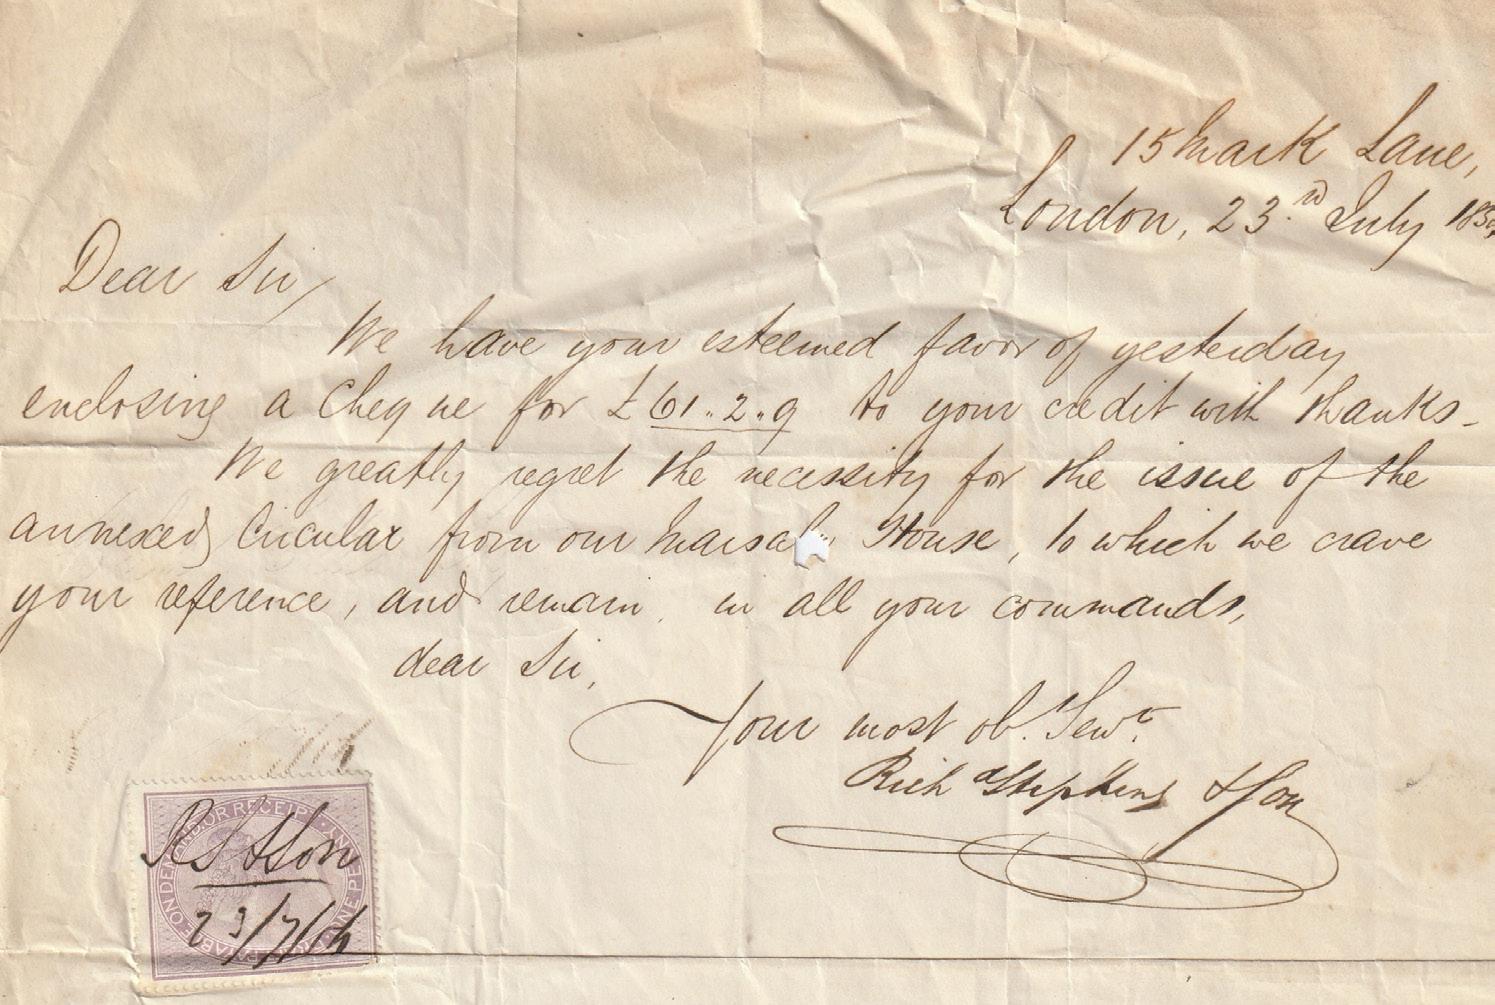 15 Mark Lane,
London, 23.rd July
Dear Sir,
We have your esteemed favor of yesterday
enclosing a Cheque for £61..2..9 to your credit with thanks_
We greatly regret the necessity for the issue of the
annexed Circular from our House, to which we crave
your reference, and remain, in all your commands,
dear Sir,
Your most ob. Servt.
Rich Stephens & Son
RS & Son
23/7/